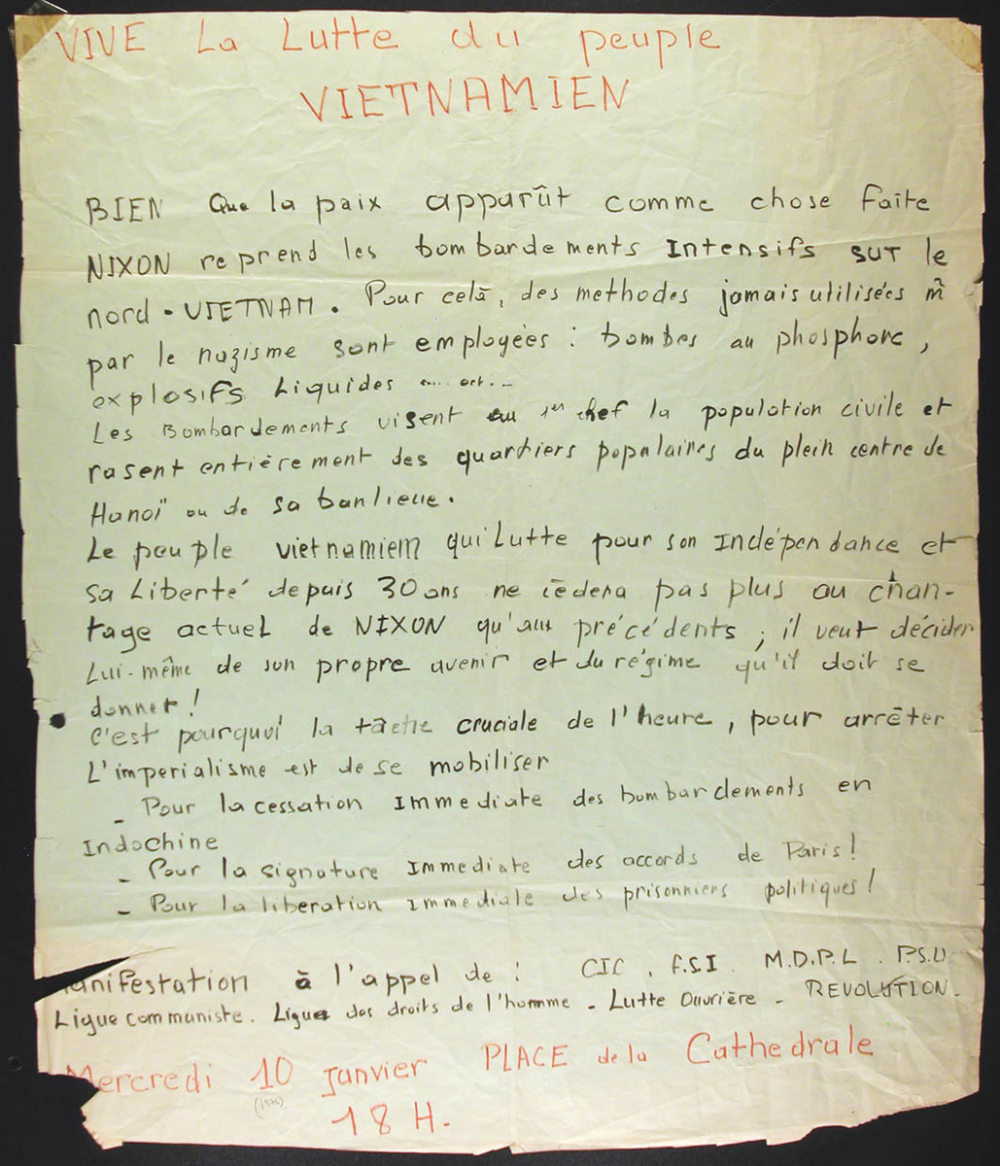 VIVE La Lutte du peuple
VIETNAMIEN
BIEN Que la paix apparût comme chose faite
NIXON reprend les bombardements Intensifs sur le
nord-VIETNAM. Pour celà, des methodes jamais utilisées m̂
par le nazisme sont employées : bombes au phosphore,
explosifs Liquides
Les Bombardements visent au 1er chef la population civile et
rasent entièrement des quartiers populaires du plein centre de
Hanoï ou de sa banlieue.
Le peuple vietnamien qui Lutte pour son Indépendance et
sa Liberté depuis 30 ans ne cèdera pas plus au chan-
tage actuel de NIXON qu'aux précédents ; il veut décider
Lui-même de son propre avenir et du régime qu'il doit se
donner !
C'est pourquoi la tâche cruciale de l'heure, pour arrêter
L'imperialisme est de se mobiliser
- Pour la cessation Immediate des bombardements en
Indochine
- Pour la signature Immediate des accords de Paris !
- Pour la liberation immediate des prisonniers politiques !
manifestation à l'appel de : CIC . F.S.I . M.D.P.L . P.S.U
Ligue communiste . Ligue des droits de l'homme - Lutte Ouvrière - REVOLUTION -
Mercredi 10 janvier PLACE de la Cathedrale
18 H.